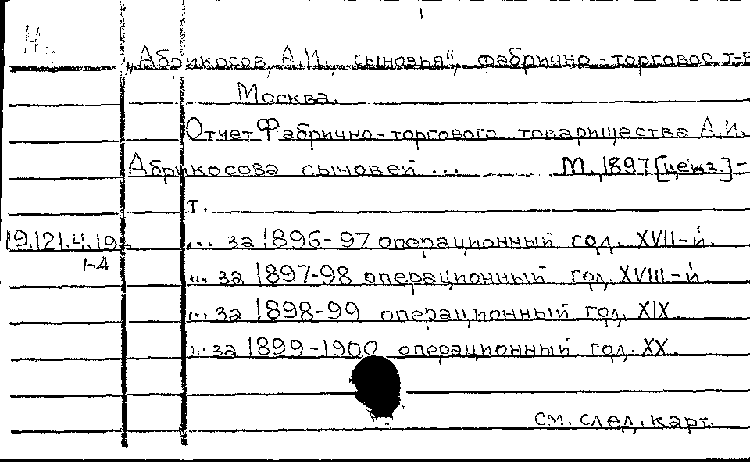 Н.
„Абрикосов, А.И., сыновья", фабрично-торговое т-в
Москва.
Отчет Фабрично-торгового товарищества А.И.
Абрикосова сыновей ... М., 1897 [ценз.] -
т.
19.121.4.19 ... за 1896-97 операционный год. XVII-й.
1-4
... за 1897-98 операционный год. XVIII-й
... за 1898-99 операционный год. XIX.
... за 1899-1900 операционный год. XX.
см. след. карт.